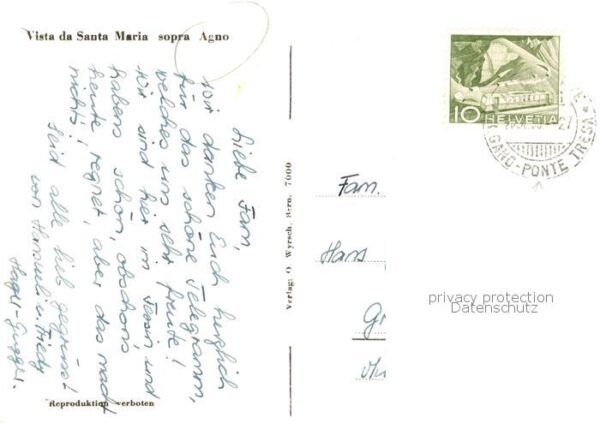 Vista da Santa Maria sopra Agno
Liebe Fam,
wir danken Euch herzlich
für das schöne Telegramm,
welches uns sehr freute!
Wir sind hier im Tessin und
habens schön, obschon's
heute regnet, aber das macht
nichts!
Seid alle lieb gegrüsst
von Hansueli u. Friedy
Hager-Guggi.
Reproduktion verboten
Verlag: O. Wyrsch, Bern. 7000
10 HELVETIA
GANO-PONTE TRESA
27
Fam.
Hans
privacy protection
Datenschutz